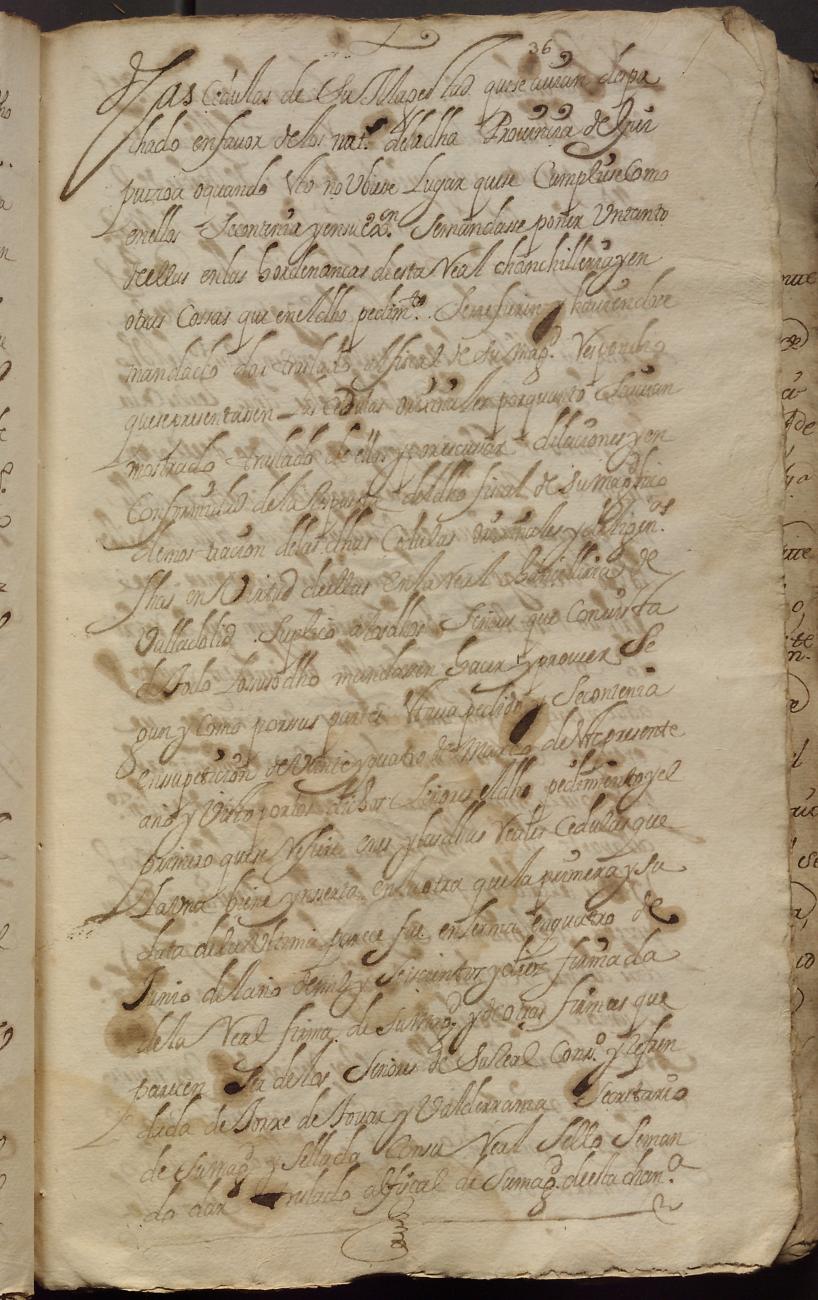 36
Las Cedulas de Su Magestad que se auian despa
chado en fauor de los nat.s de la dha Prouinçia de Gui
puzcoa o quando esto no Vbiese Lugar que se Cumpliese Como
en ellas Se contenia y en su ex.on Se mandasse poner Vn tanto
de ellas en las hordenanças de esta Real chanchilleria y en
otras Cossas que en el dho pedim.to Se refieren y hauiendose
mandado dar traslado al fiscal de Su Mag.d Respondio
que se presentasen Las Cedulas originales por quanto Se auian
mostrado traslado de ellas y para escusar dilaçiones y en
Conformidad de la Respuesta del dho fiscal de Su Mag.d hiço
demostraçion de las dhas Cedulas originales y diligen.as
fhas en Virtud de ellas en la Real chançilleria de
Valladolid Suplico a los dhos Señores que Con vista
de todo Lo susodho mandasen hacer y proueer Se
gun y Como por sus partes estaua pedido y Se contenia
en su petiçion de Veinte y quatro de Março de este presente
año y Visto por los dichos Señores el dho pedimiento y el
primero que se Refiere en el y las dhas Reales Cedulas que
La vna biene ynserta en la otra que la primera y su
data de la Vltima pareçe fue en lerma en quatro de
Junio del año de mill y Seisçientos y diez firmada
de la Real firma de Su Mag.d y de otras firmas que
pareçen Ser de los Señores de Su Real Cons.o y Refren
dada de Jorge de touar y Valderrama Secretario
de Su mag.d y Sellada Con su Real Sello Se man
do dar traslado al fiscal de Su mag.d de esta chan.a